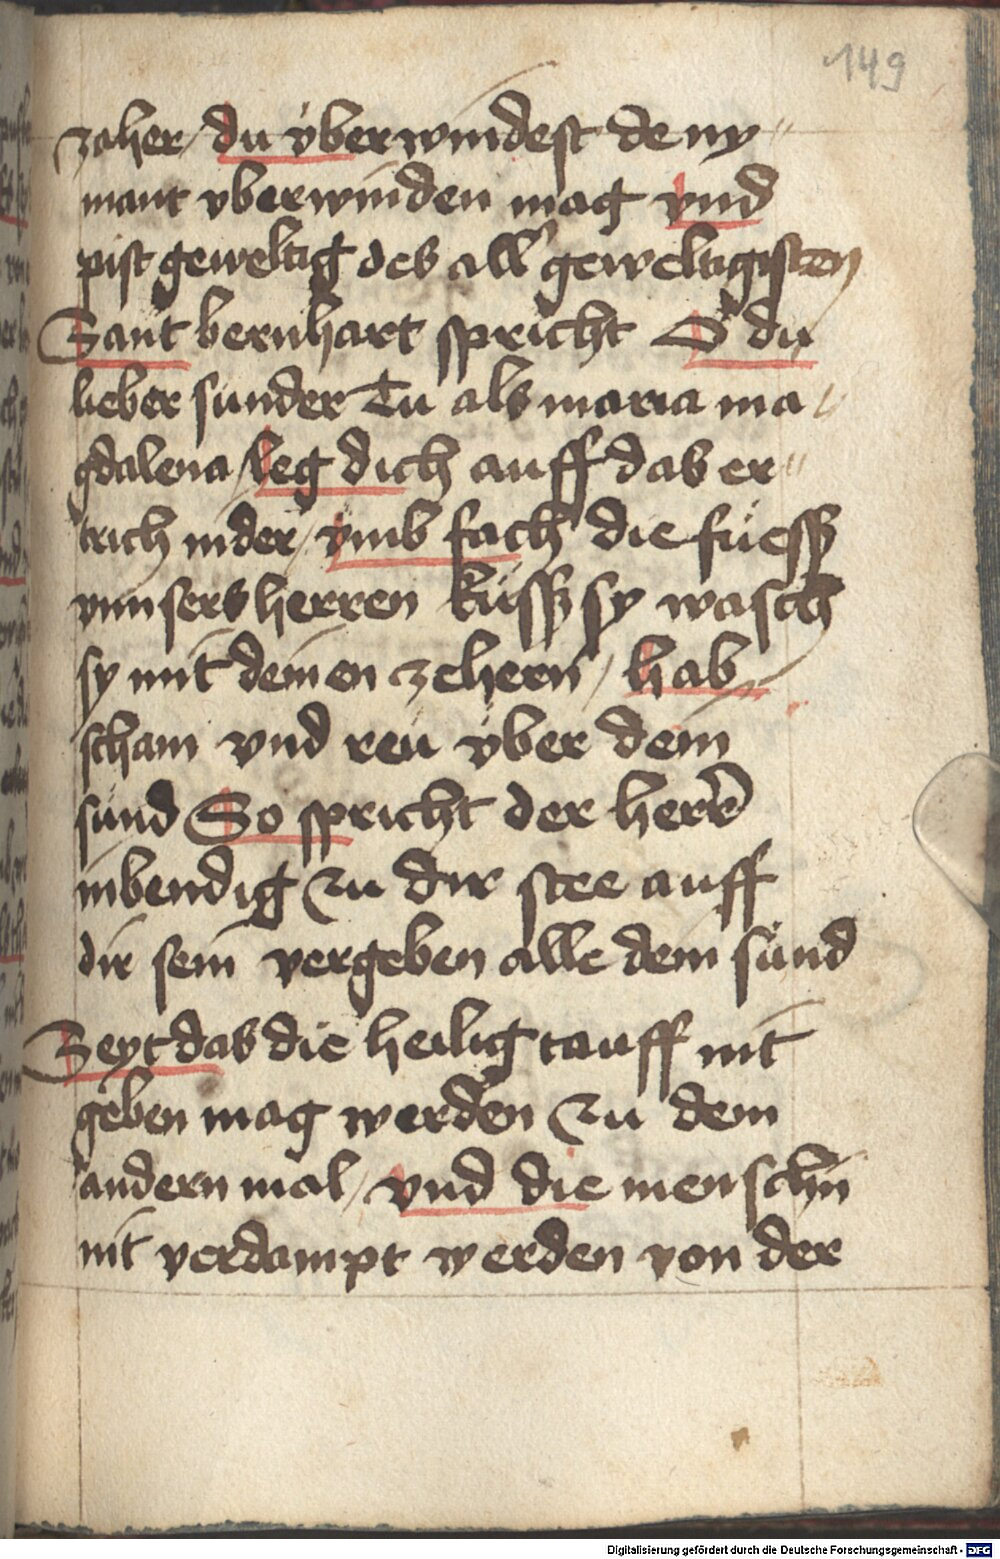 149
zaher / du vberwindest de ny¬
mant vberwinden mag vnd
pist geweltig des all geweltigisten
Sant bernhart spricht O du
lieber sunder Tu als maria ma
gdalena / leg dich auff das er¬
trich nider / vmb fach die füessz
vnnsers herren küssz sy wasch
sy mit deinen zehern / hab
scham vnd reu vber dein
sünd So spricht der herr
inbendig zu dir stee auff
dir sein vergeben alle dein sünd
Seyt das die heilig tauff nit
geben mag werden zu dem
andern mal / vnd die menschn
nit verdampt werden von der
Digitalisierung gefördert durch die Deutsche Forschungsgemeinschaft - DFG